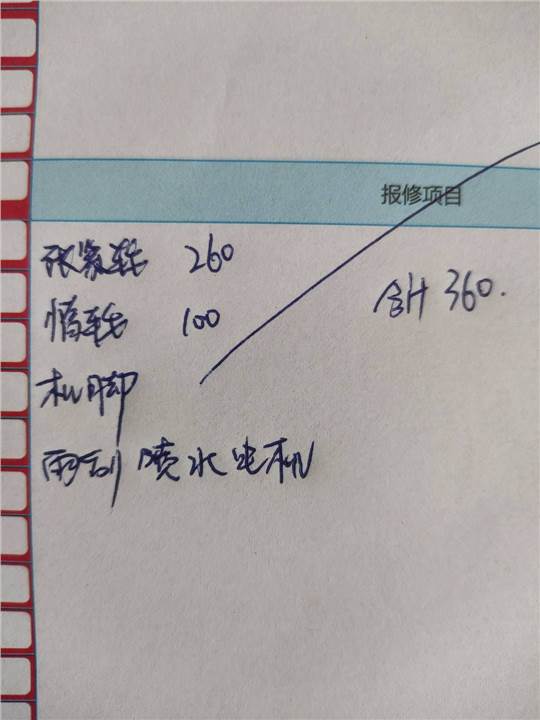 报修项目
张紧轮 260
合计 360.
惰轮 100
机脚
雨刮喷水电机